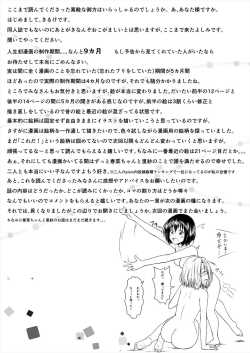 ここまで読んでくださった素敵な御方はいらっしゃるのでしょうか、あ、あなた様ですか。
はじめまして、きるけです。
同人誌でもないのにあとがきなんぞおこがましいとは思いますが、ここまで来たよしみです。
聞いてやってください。
人生初漫画の制作期間、、、なんと9か月 もし予告から見てくれていた人がいたなら
お待たせして本当にごめんなさい。
実は間に全く漫画のことを忘れていた(忘れたフリをしていた)期間が5カ月間
ほどあったので実質の制作期間は4カ月なのですが、それでも随分かかりましたね。
ところでみなさんもお気付きと思いますが、絵が非常に変わりました。だいたい前半の12ページと
後半の14ページの間に5カ月の開きがある感じなのですが、前半の絵は3割くらい修正と
描き直しをしているので昔の絵と最近の絵が混ざってる状態です。
基本的に絵柄は固定せず自由きままにイラストを描いていこうと思っているのですが、
さすがに漫画は作品を一作通して描きたいので、色々試しながら漫画用の絵柄を探っていました。
まだ「これだ!」という絵柄は固めてないので次回以降もどんどん変わっていくと思いますが、
頑張ってるなーと思って読んでもらえると嬉しいです。ちなみに一番最近の絵は21ページ目だとか、、、
あぁ、それにしても漫画かいてる間はずっと春菜ちゃんと里紗のことで頭を満たせるので幸せでした。
二人とも本当にいい子なんですもん、
あと、これを読んでくださったみなさんに感想やアドバイスをお願いしたいのです。
話の内容はどうだったか、どこが読みにくかったか、コマの割り方とか等々
なんでもいいのでコメントをもらえると嬉しいです、あなたの一言が次の漫画の糧になります。
それでは、長くなりましたがこの辺りでお開きにしましょうか。次回の漫画でまた会いましょう。